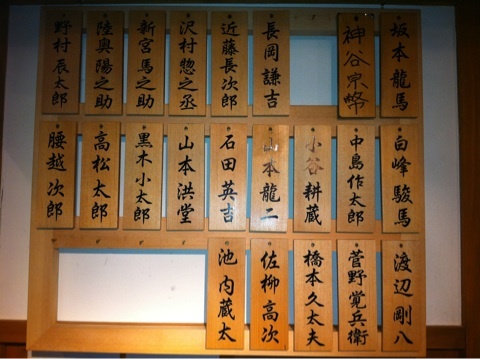 坂本龍馬
神谷宗幣
長岡謙吉
近藤長次郎
沢村惣之丞
新宮馬之助
陸奥陽之助
野村辰太郎
白峰駿馬
中島作太郎
小谷耕蔵
山本龍二
石田英吉
山本洪堂
黒木小太郎
高松太郎
腰越次郎
渡辺剛八
菅野覚兵衛
橋本久太夫
佐柳高次
池内蔵太